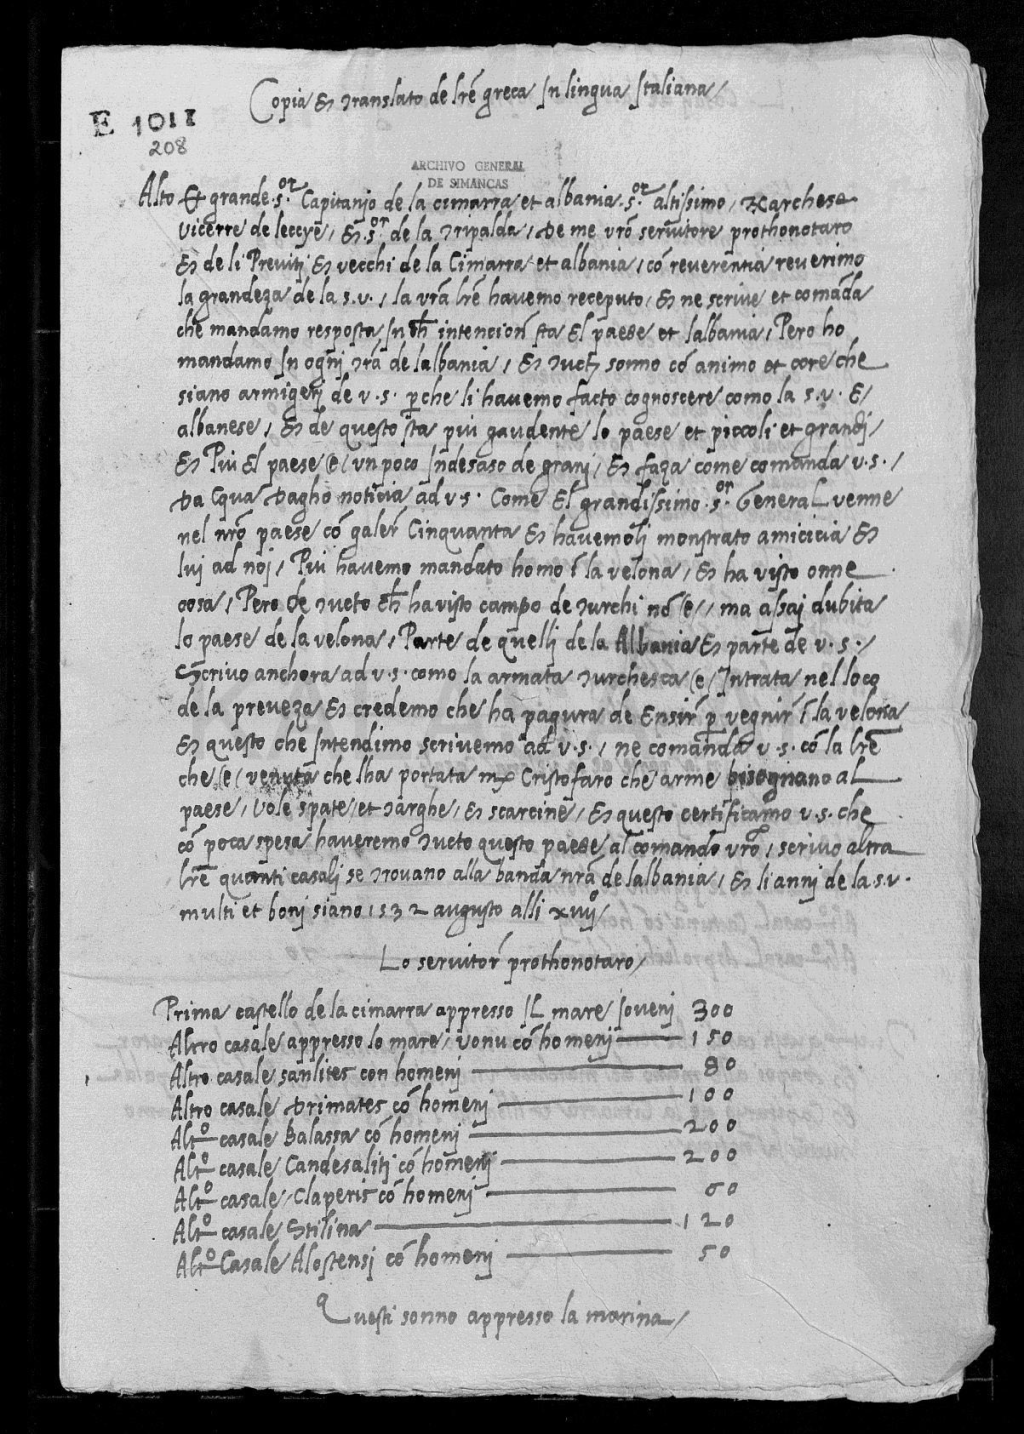 Copia et translato de lrē greca In lingua Italiana /
E 1011
208
ARCHIVO GENERAL
DE SIMANCAS
Alto Et grande .s.or Capitanjo de la cimarra et albania .s.or altissimo / Marchese
vicerre de leccye / Et .s.or de la tripalda / De me vrō servitore prothonotaro
Et de li Previtj Et vecchi de la Cimarra et albania / cō reverentia reverimo
la grandeza de la s.v. / la vrā lrē havemo receputo / Et ne scrive et comāda
che mandamo resposta In ch intencion sta El paese et lalbania / Pero ho
mandamo In ognj trā de lalbania / Et tuctj sonno cō animo et core che
siano armigerj de v.s. perche li havemo facto cognoscere como la s.v. E
albanese / Et de questo sta piu gaudente lo paese et piccoli et grandj /
Et Piu El paese (e) un poco Indesaso de granj / Et faza come comanda v.s. /
Da Cqua Dagho noticia ad v.s. Come El grandissimo .s.or General venne
nel nrō paese cō galer Cinquanta Et havemolj monstrato amicicia Et
luj ad noj / Piu havemo mandato homo ī la velona / Et ha visto onne
cosa / Pero de tucto ch ha visto campo de turchi nō (e) / ma assaj dubita
lo paese de la velona / Parte de quellj de la Albania Et parte de v.s. /
Scrivo anchora ad v.s. como la armata turchesca (e) Intrata nel loco
de la preveza Et credemo che ha pagura de Ensir per vegnir ī la velona
Et questo che Intendimo scrivemo ad v.s. / ne comanda v.s. cō la lrē
che (e) venuta che lha portata Cristofaro che arme bisognano al
paese / Vole spate / et targhe / Et scarcine / Et questo certificamo v.s. che
cō poca spesa haveremo tucto questo paese al comando vrō / scrivo altra
lrē quanti casalj se trovano alla banda nrā de lalbania / Et li annj de la s.v.
multi et bonj siano 1532 augusto alli xvijº /
Lo servitor prothonotaro /
Prima castello de la cimarra appresso IL mare Iovenj 300
Altro casale appresso lo mare / vonu cō homenj 150
Altro casale sanlites con homenj 80
Altro casale Drimates cō homenj 100
Altrº casale Balassa cō homenj 200
Altrº casale Candesalitj cō homenj 200
Altrº casale Claperis cō homenj 60
Altrº casale Stilina 120
Altrº Casale Alostensj cō homenj 50
Questi sonno appresso la marina /